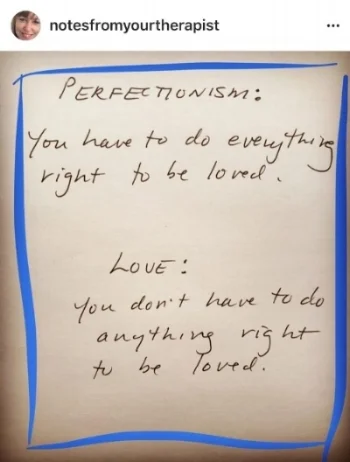 notesfromyourtherapist
PERFECTIONISM:
You have to do everything
right to be loved.
LOVE:
You don't have to do
anything right
to be loved.